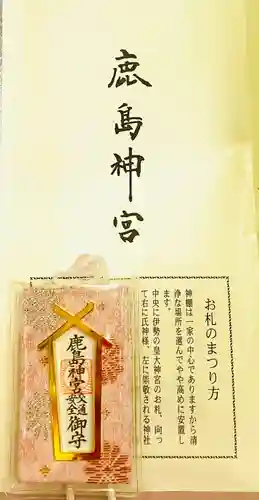 鹿島神宮
お札のまつり方
神棚は一家の中心でありますから清
浄な場所を選んでやや高めに安置し
ます。
中央に伊勢の皇大神宮のお札、向っ
て右に氏神様、左に崇敬される神社
鹿島神宮交通安全御守